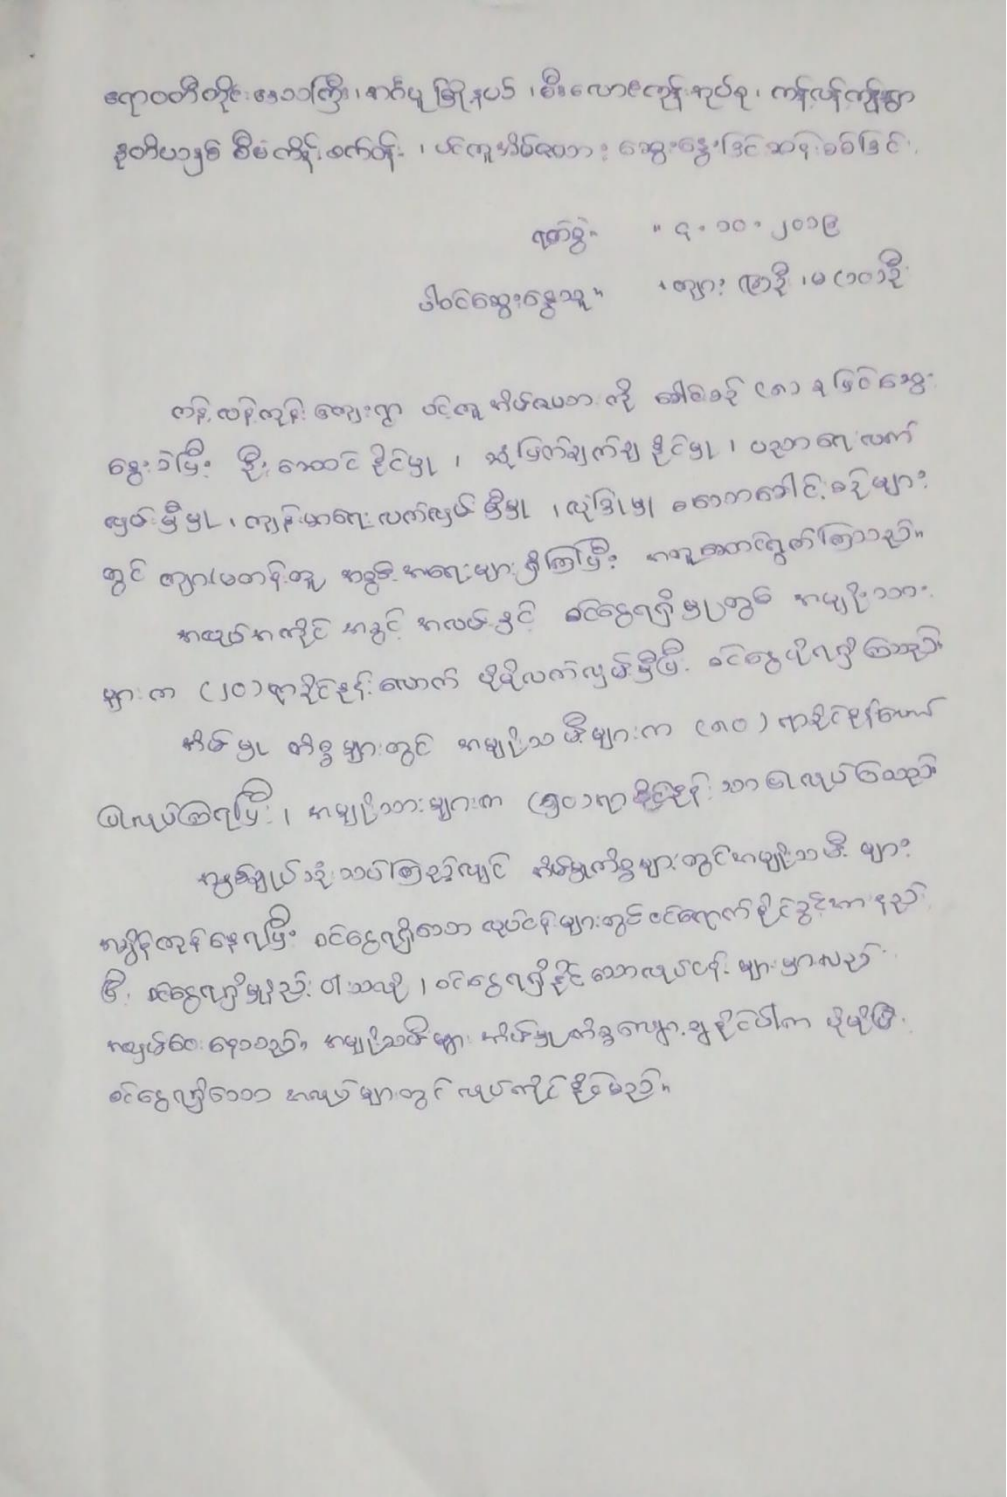 ဧရာဝတီတိုင်းဒေသကြီး၊ အင်္ဂပူမြို့နယ် ၊ စီးလောင်ကုန်းအုပ်စု၊ ကန့်လန့်ကျွန်းရွာ
ဒုတိယနှစ် စီမံကိန်း စက်ဝန်း ၊ ပင်ကူအိမ်ဇယား ဆွေးနွေးခြင်းဆန်းစစ်ခြင်း
ရက်စွဲ။ ။ ၎.၁၀.၂၀၁၉
ပါဝင်ဆွေးနွေးသူ။ ၊ ကျား ဦး ၊ မ (၁၀)ဦး
ကန့်လန့်ကုန်း ကျေးရွာ ပင့်ကူအိမ်ဇယား ကို ခေါင်းစဉ် (၈) ခုဖြင့်ဆွေး
နွေးခဲ့ပြီး ဦးဆောင်နိုင်မှု ၊ ဆုံးဖြတ်ချက်ချနိုင်မှု ၊ ပညာရေးလက်
လှမ်းမှီမှု ၊ ကျန်းမာရေးလက်လှမ်းမှီမှု ၊ လုံခြုံမှု စသောခေါင်းစဉ်များ
တွင် ကျား/မတန်းတူ အခွင့်အရေးများရှိကြပြီး အတူဆောင်ရွက်ကြသည်။
အလုပ်အကိုင် အခွင့်အလမ်းနှင့် ဝင်ငွေရရှိမှုတွင် အမျိုးသား
များက (၂၀)ရာခိုင်နှုန်းလောက် ပိုမိုလက်လှမ်းမှီပြီး ဝင်ငွေပိုရရှိကြသည်။
အိမ်မှု ကိစ္စများတွင် အမျိုးသမီးများက (၈၀) ရာခိုင်နှုန်းလောက်
လုပ်ကြရပြီး ၊ အမျိုးသားများက (၅၀)ရာခိုင်နှုန်းသာ လုပ်ကြသည်။
ခြုံငုံသုံးသပ်ကြည့်လျှင် အိမ်မှုကိစ္စများတွင်အမျိုးသမီးများ
အချိန်ကုန်နေရပြီး ဝင်ငွေရရှိသော လုပ်ငန်းများတွင် ဝင်ရောက်နိုင်ခွင့်အားနည်း
ပြီး ဝင်ငွေရရှိမှုနည်းပါးသလို ၊ ဝင်ငွေရရှိနိုင်သောလုပ်ငန်းများမှာလည်း
အလှမ်းဝေးနေသည်။ အမျိုးသမီးများ အိမ်မှုကိစ္စလျှော့ချနိုင်ပါက ပိုမိုပြီး
ဝင်ငွေရရှိသော အလုပ်များတွင် လုပ်ကိုင်နိုင်မည်။